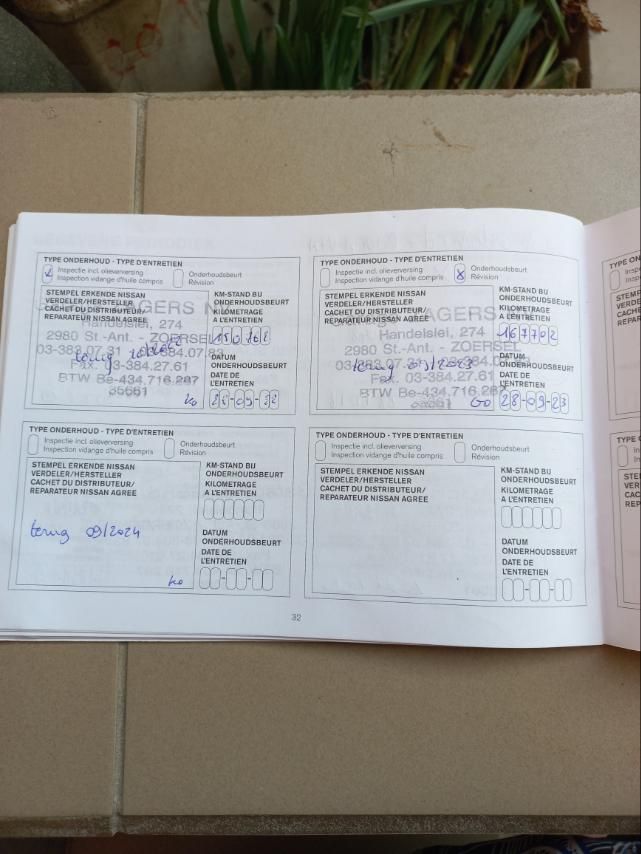 TYPE ONDERHOUD - TYPE D'ENTRETIEN
Inspectie incl. olieverversing
Inspection vidange d'huile compris
Onderhoudsbeurt
Révision
STEMPEL ERKENDE NISSAN
VERDELER/HERSTELLER
CACHET DU DISTRIBUTEUR/
REPARATEUR NISSAN AGREE
AGERS N
Handelslei, 274
2980 St.-Ant. - ZOERSEL
Fax. 03-384.27.61
BTW Be-434.716.287
KM-STAND BIJ
ONDERHOUDSBEURT
KILOMETRAGE
A L'ENTRETIEN
DATUM
ONDERHOUDSBEURT
DATE DE
L'ENTRETIEN
TYPE ONDERHOUD - TYPE D'ENTRETIEN
Inspectie incl. olieverversing
Inspection vidange d'huile compris
Onderhoudsbeurt
Révision
STEMPEL ERKENDE NISSAN
VERDELER/HERSTELLER
CACHET DU DISTRIBUTEUR/
REPARATEUR NISSAN AGREE
AGERS
Handelslei, 274
2980 St.-Ant. - ZOERSEL
terug 09/2023
Fax. 03-384.27.61
BTW Be-434.716.287
KM-STAND BIJ
ONDERHOUDSBEURT
KILOMETRAGE
A L'ENTRETIEN
167702
DATUM
ONDERHOUDSBEURT
DATE DE
L'ENTRETIEN
28-09-23
TYPE ONDERHOUD - TYPE D'ENTRETIEN
Inspectie incl. olieverversing
Inspection vidange d'huile compris
Onderhoudsbeurt
Révision
STEMPEL ERKENDE NISSAN
VERDELER/HERSTELLER
CACHET DU DISTRIBUTEUR/
REPARATEUR NISSAN AGREE
terug 09/2024
KM-STAND BIJ
ONDERHOUDSBEURT
KILOMETRAGE
A L'ENTRETIEN
DATUM
ONDERHOUDSBEURT
DATE DE
L'ENTRETIEN
TYPE ONDERHOUD - TYPE D'ENTRETIEN
Inspectie incl. olieverversing
Inspection vidange d'huile compris
Onderhoudsbeurt
Révision
STEMPEL ERKENDE NISSAN
VERDELER/HERSTELLER
CACHET DU DISTRIBUTEUR/
REPARATEUR NISSAN AGREE
KM-STAND BIJ
ONDERHOUDSBEURT
KILOMETRAGE
A L'ENTRETIEN
DATUM
ONDERHOUDSBEURT
DATE DE
L'ENTRETIEN
32